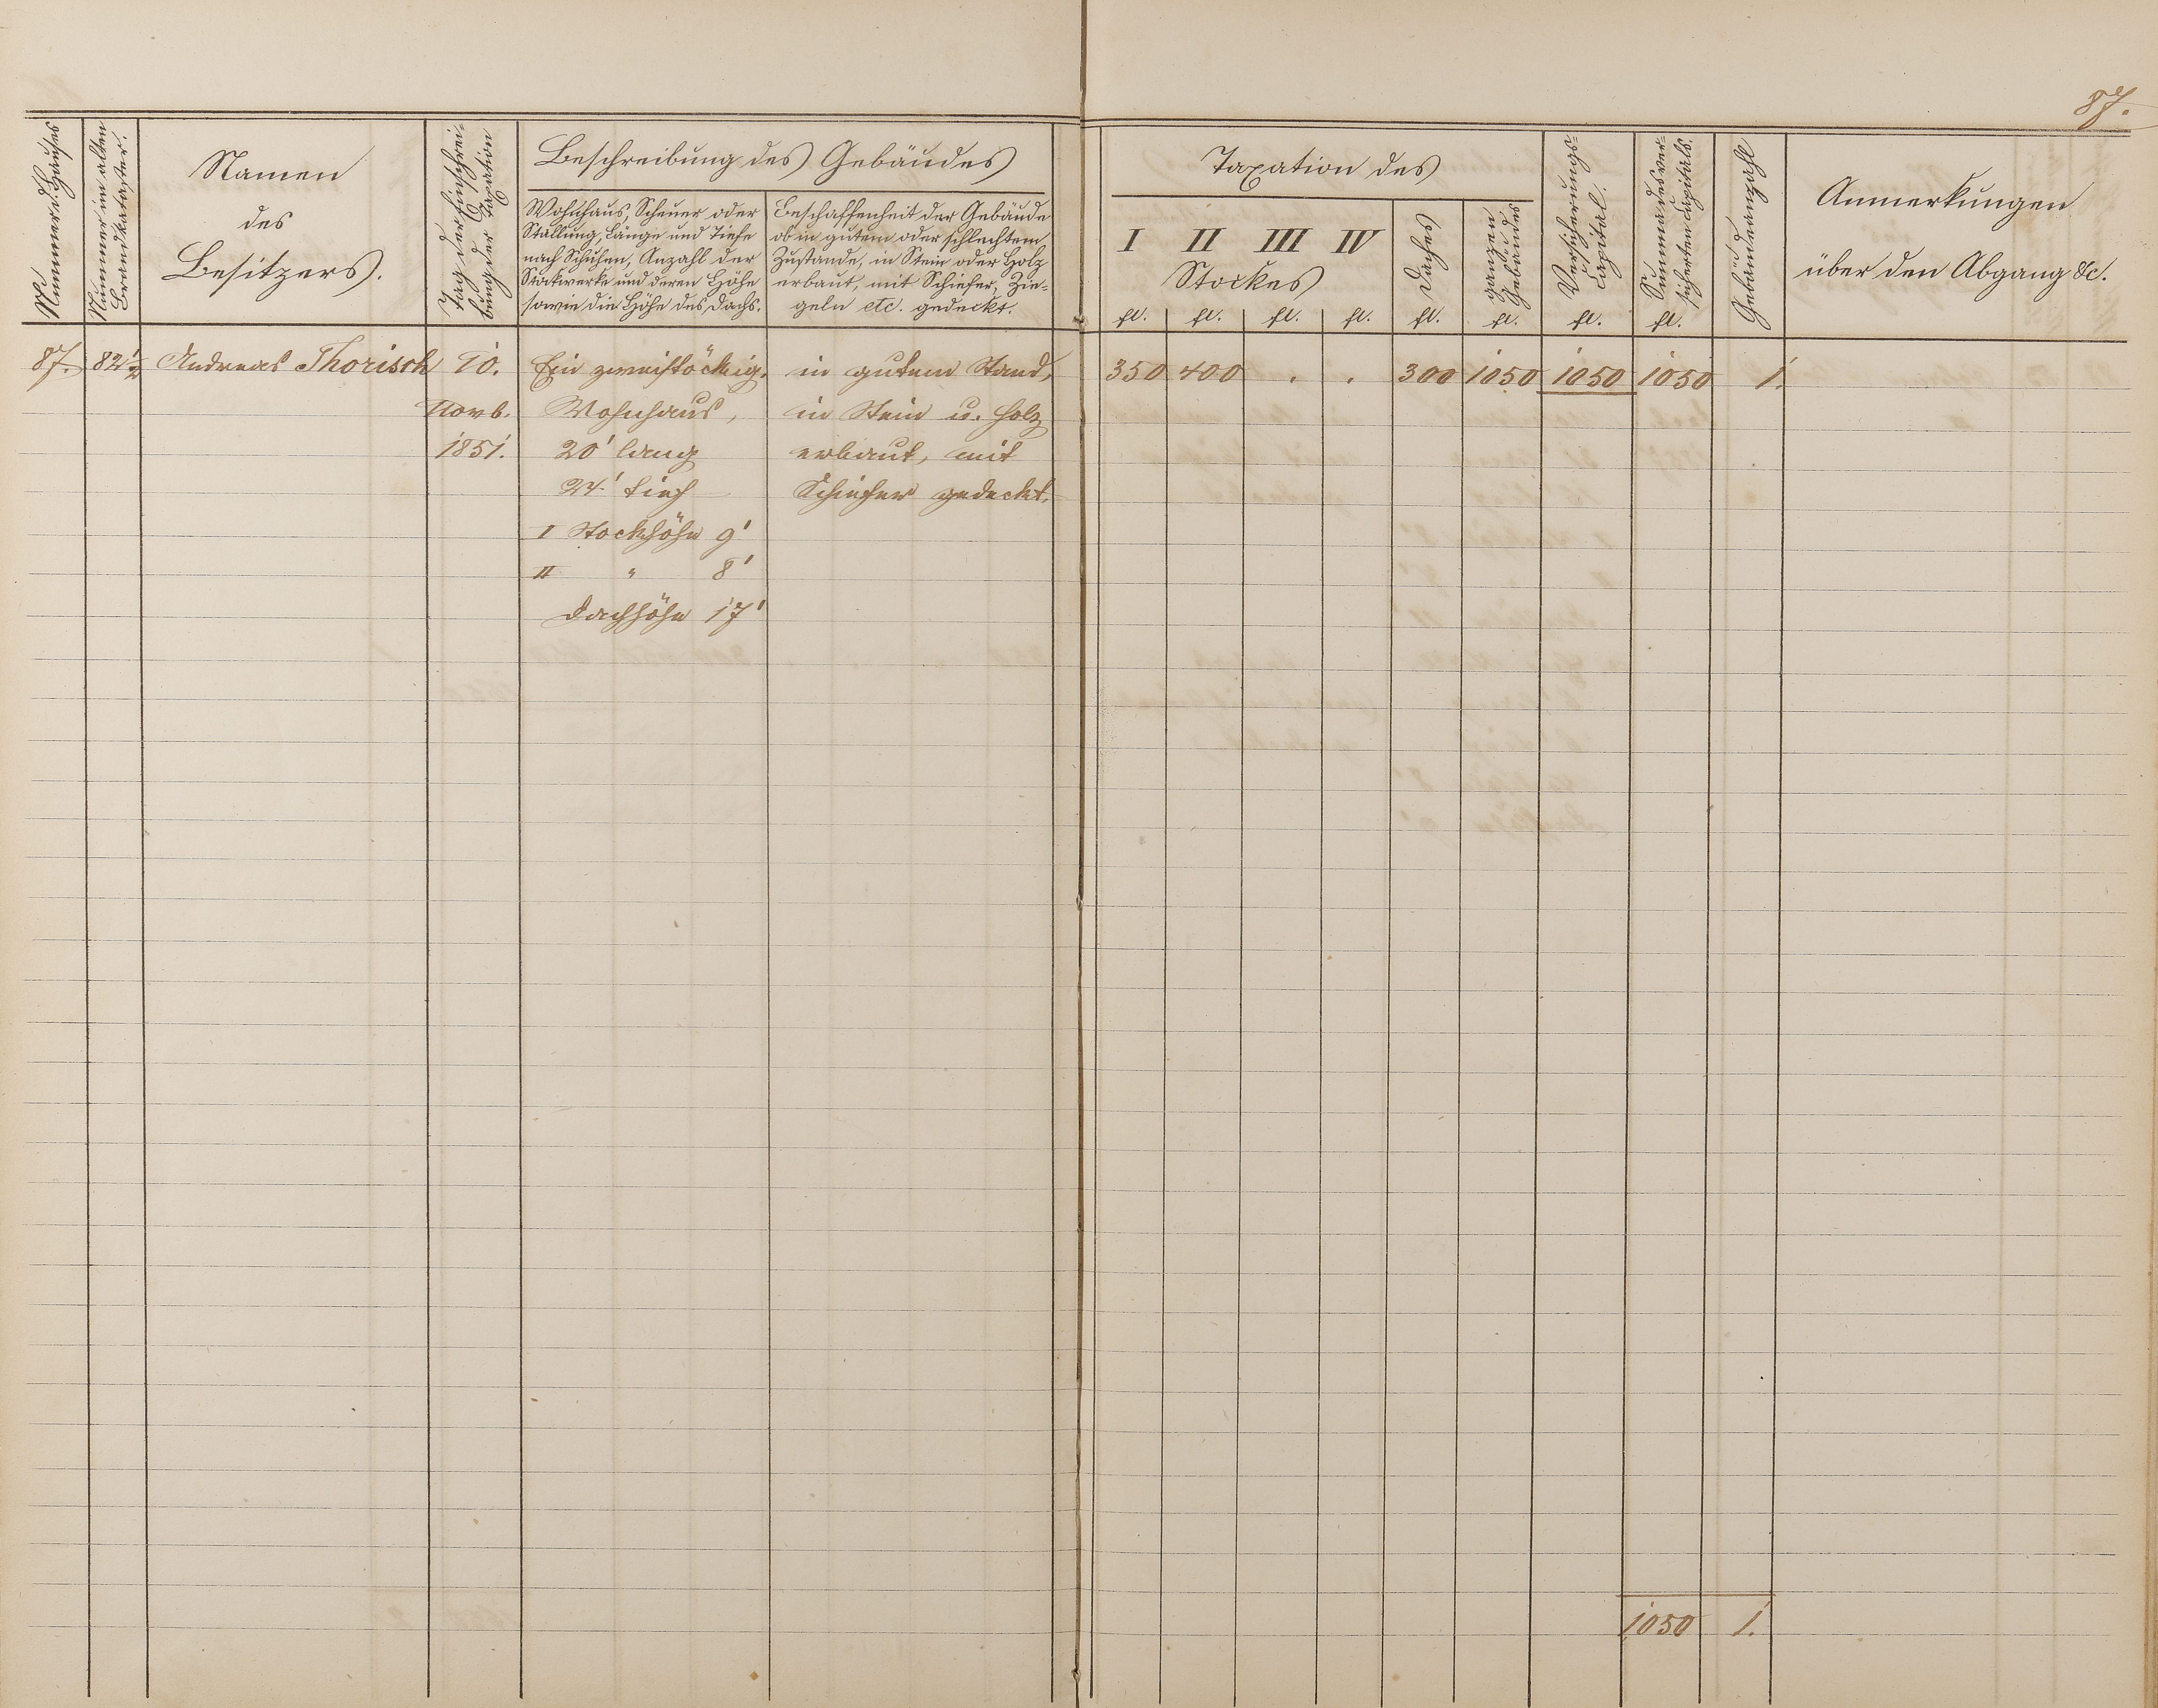 87.
Nummer d. Hauses
Nummer im alten
Brandkataster.
Namen
des
Besitzers.
Tag der Einschrei-
bung der Taxation
Beschreibung des Gebäudes
Wohnhaus, Scheuer oder
Stallung, Länge und Tiefe
nach Schuhen, Anzahl der
Stockwerke und deren Höhe
sowie die Höhe des Dachs.
Beschaffenheit der Gebäude
ob in gutem oder schlechtem
Zustande, in Stein oder Holz
erbaut, mit Schiefer, Zie-
geln etc. gedeckt.
Taxation des
I II III IV
Stockes
Daches
ganzen
Gebäudes
Versicherungs-
Capital.
Summa des ver-
sicherten Capitals.
Gebäudeanzahl
Anmerkungen
über den Abgang &c.
fl. fl. fl. fl. fl. fl. fl. fl.
87. 82 1/2 Andreas Thorisch 10. Ein zweistöckig. in gutem Stand, 350 400 . . 300 1050 1050 1050 1.
Novb. Wohnhaus, in Stein u. Holz
1851. 20' lang erbaut, mit
24' tief Schiefer gedeckt.
I Stockhöhe 9'
II " 8'
Dachhöhe 17'
1050 1.